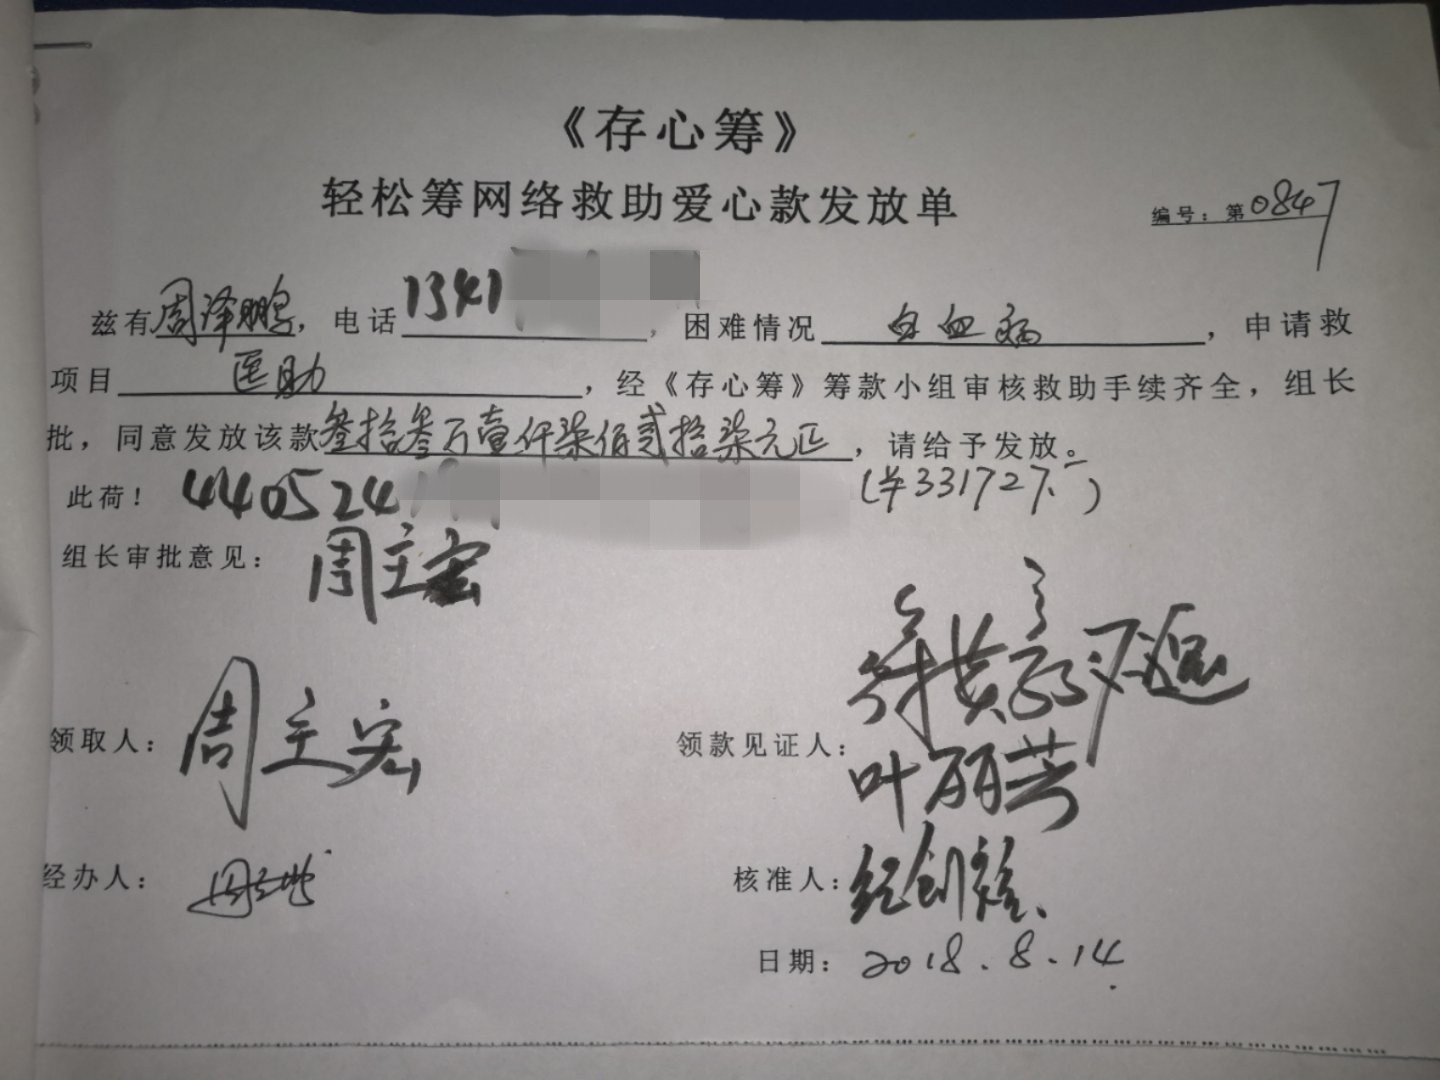 《存心筹》
轻松筹网络救助爱心款发放单
编号：第0847
兹有周泽鹏，电话1341，困难情况白血病，申请救
项目医助，经《存心筹》筹款小组审核救助手续齐全，组长
批，同意发放该款叁拾叁万壹仟柒佰贰拾柒元正，请给予发放。
此荷！440524 (¥331727元)
组长审批意见：周主宏
领取人：周主宏 领款见证人：
叶丽芳
经办人： 核准人：
日期：2018.8.14